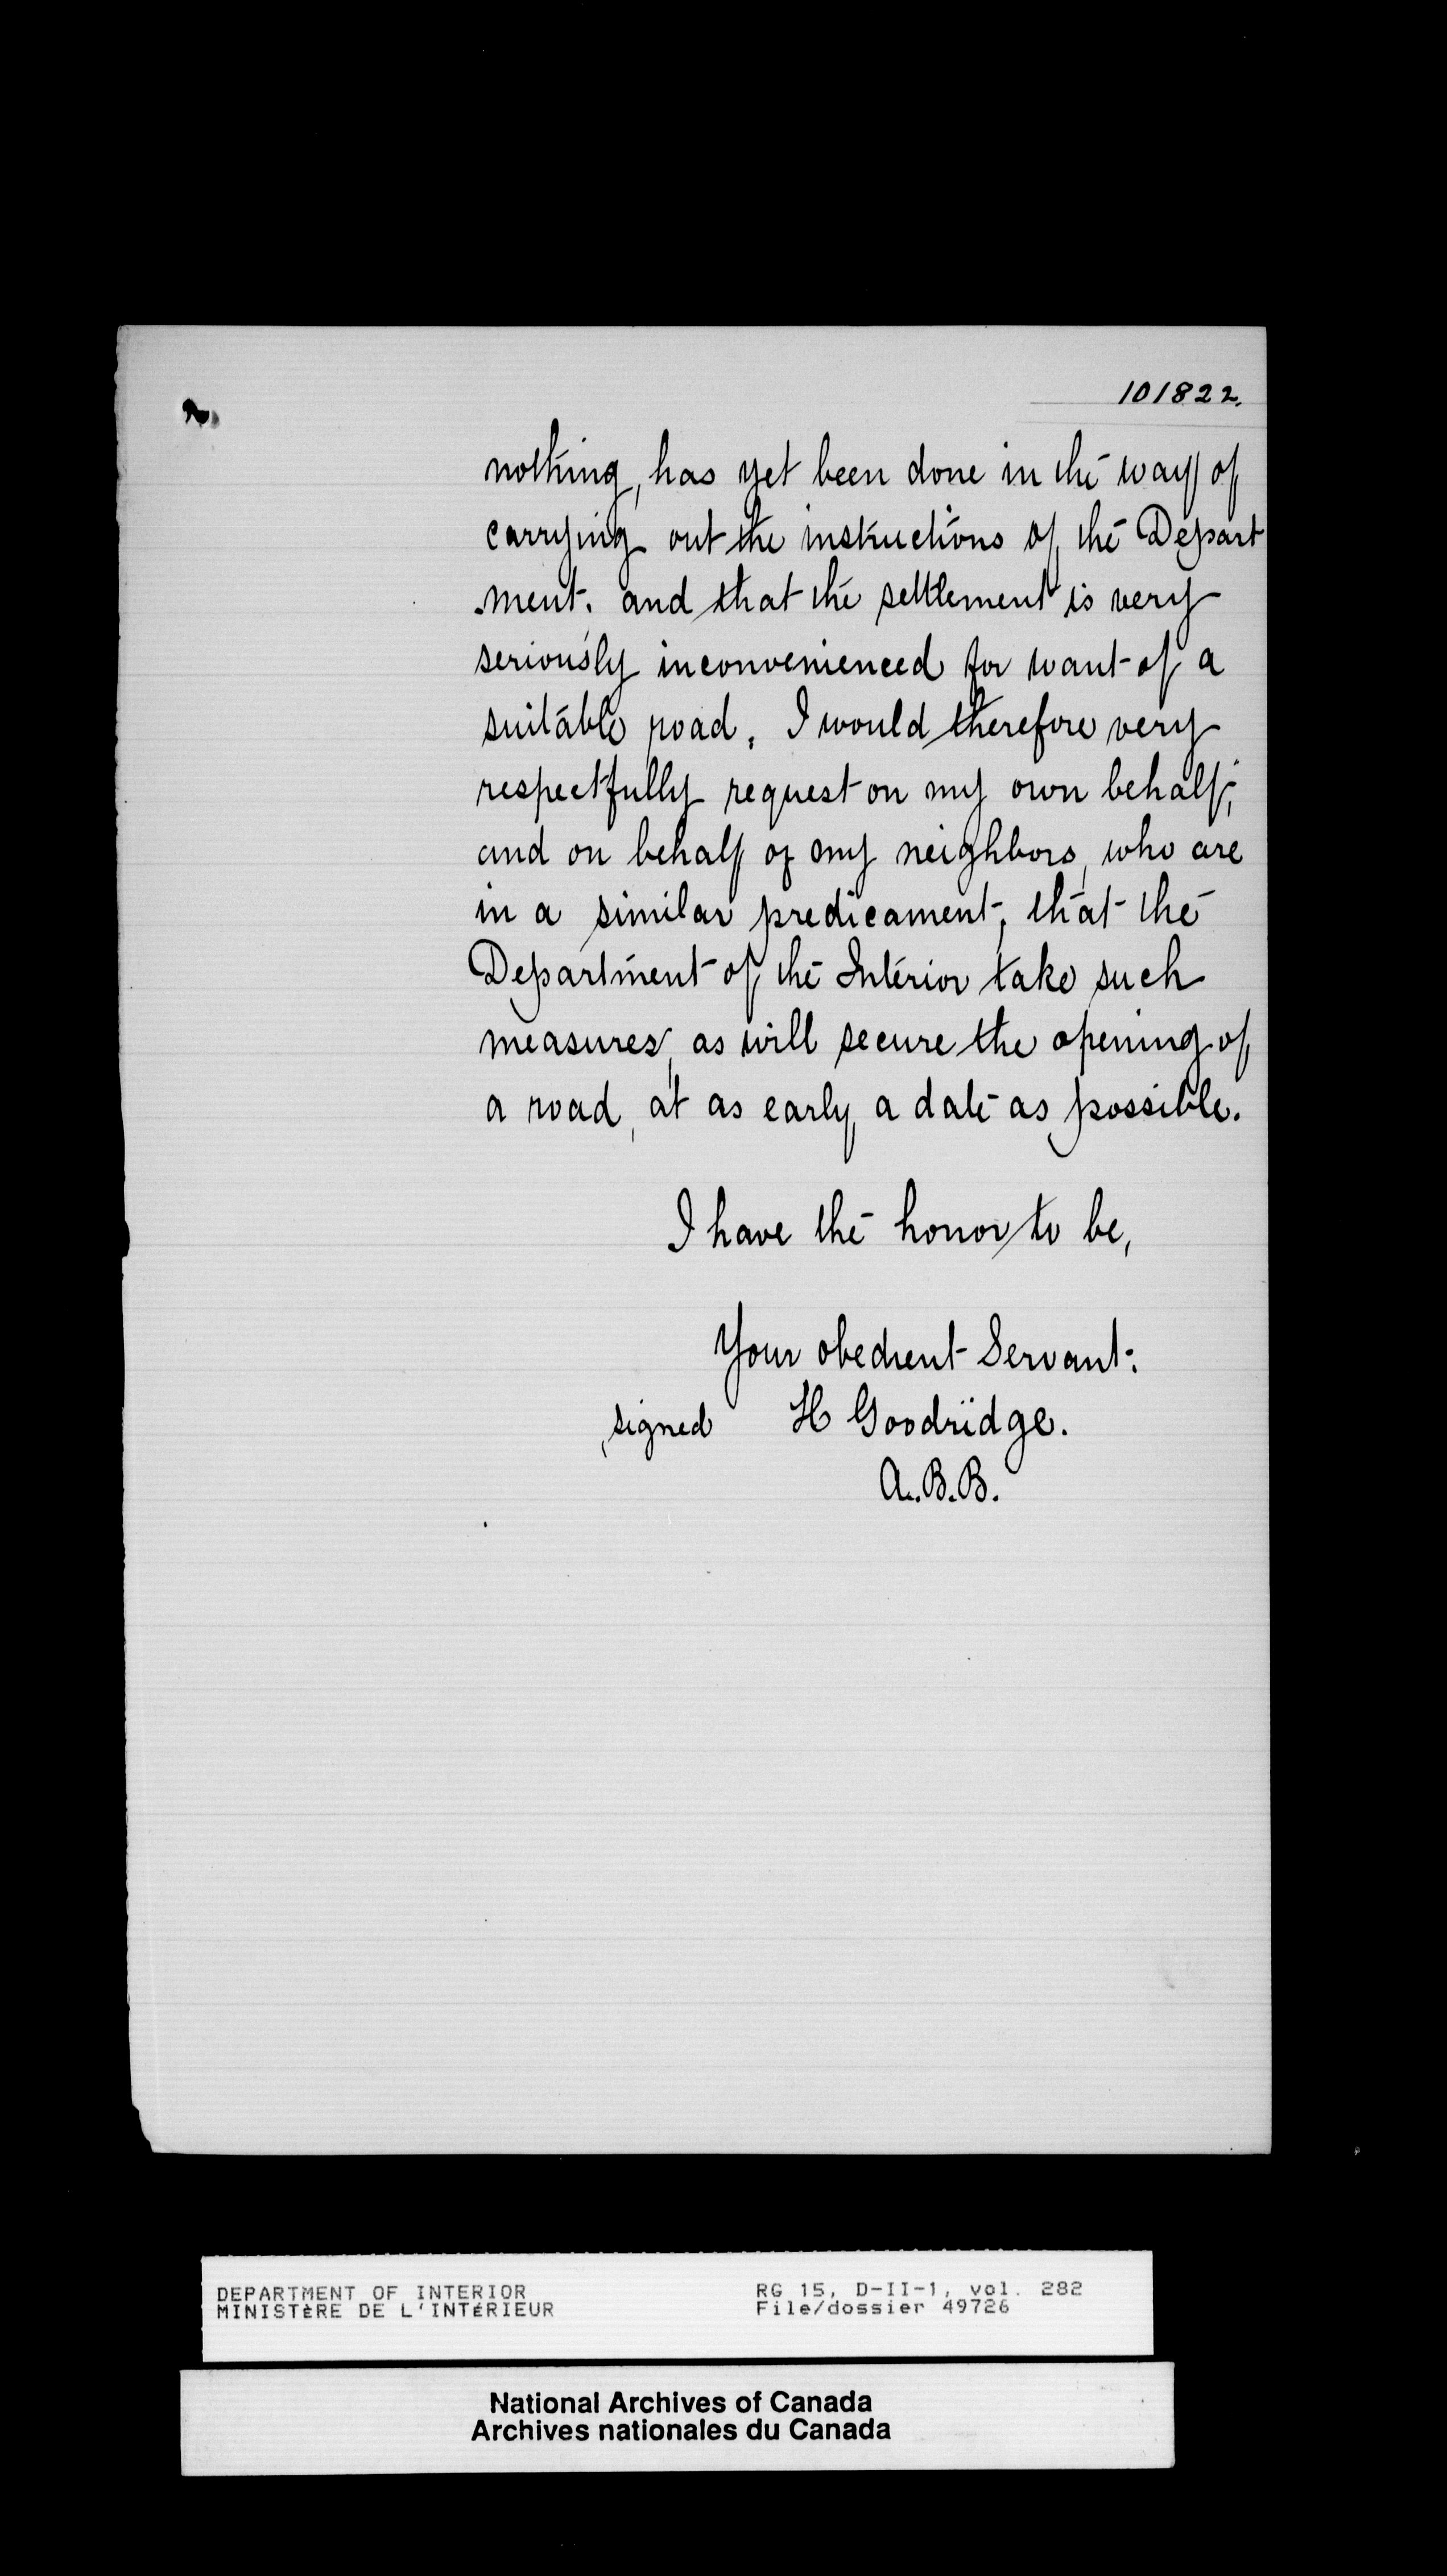 101822.
2.
nothing, has yet been done in the way of
carrying out the instructions of the Depart
ment. and that the settlement is very
seriously inconvenienced for want of a
suitable road. I would therefore very
respectfully request on my own behalf,
and on behalf of my neighbors, who are
in a similar predicament, that the
Department of the Interior take such
measures, as will secure the opening of
a road, at as early a date as possible.
I have the honor to be,
Your obedient Servant.
signed H Goodridge.
A.B.B.
DEPARTMENT OF INTERIOR RG 15, D-II-1, vol. 282
MINISTÈRE DE L'INTÉRIEUR File/dossier 49726
National Archives of Canada
Archives nationales du Canada